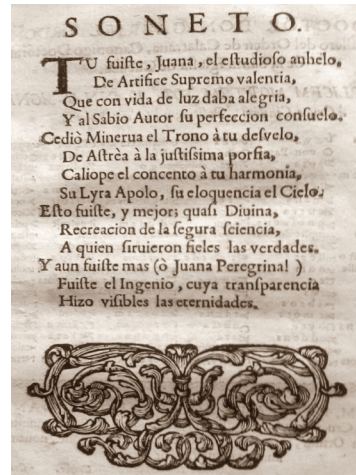 SONETO.
TU fuiſte, Juana, el eſtudioſo anhelo,
De Artifice Supremo valentia,
Que con vida de luz daba alegria,
Y al Sabio Autor ſu perfeccion conſuelo.
Cediò Minerua el Trono à tu deſvelo,
De Aſtrèa à la juſtiſsima porfia,
Caliope el concento à tu harmonia,
Su Lyra Apolo, ſu eloquencia el Cielo.
Eſto fuiſte, y mejor; quaſi Diuina,
Recreacion de la ſegura ſciencia,
A quien ſiruieron fieles las verdades.
Y aun fuiſte mas (ò Juana Peregrina! )
Fuiſte el Ingenio, cuya tranſparencia
Hizo viſibles las eternidades.